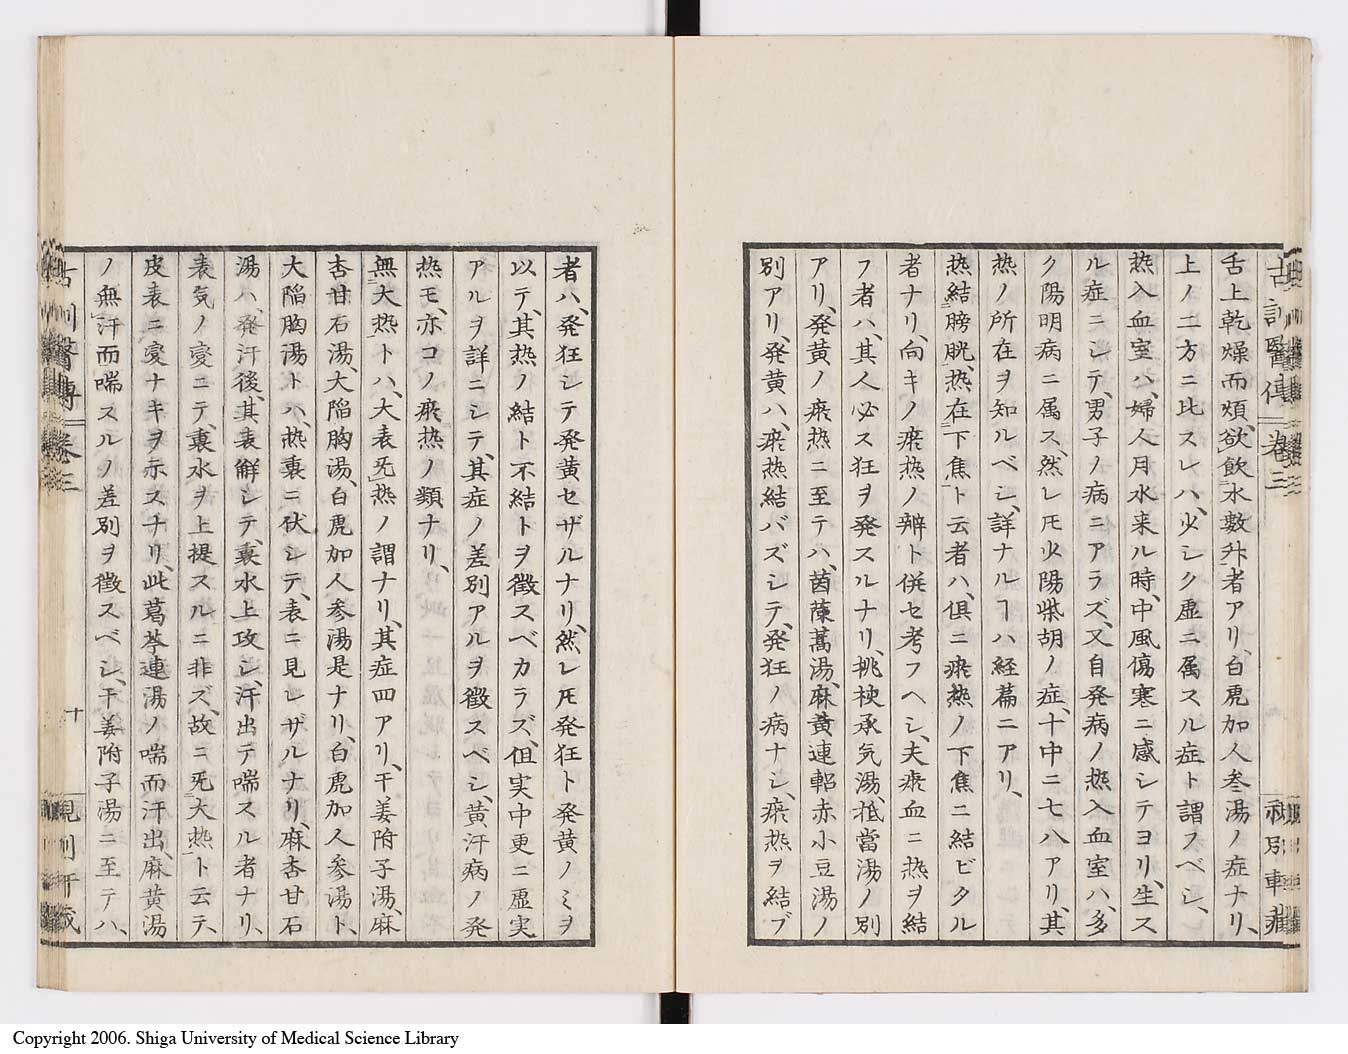 舌上乾燥而煩、欲飲水數升者アリ、白虎加人参湯ノ症ナリ、
上ノ二方ニ比スレハ、少シク虚ニ属スル症ト謂フベシ、
熱入血室ハ、婦人月水来ル時、中風傷寒ニ感シテヨリ、生ス
ル症ニシテ、男子ノ病ニアラズ、又自発病ノ熱入血室ハ、多
ク陽明病ニ属ス、然レ𪜈少陽柴胡ノ症、十中ニ七八アリ、其
熱ノ所在ヲ知ルベシ、詳ナルヿハ経篇ニアリ、
熱結膀胱、熱在下焦ト云者ハ、倶ニ瘀熱ノ下焦ニ結ビタル
者ナリ、向キノ瘀熱ノ辨ト併セ考フヘシ、夫瘀血ニ熱ヲ結
フ者ハ、其人必ス狂ヲ発スルナリ、桃核承気湯、抵當湯ノ別
アリ、発黄ノ瘀熱ニ至テハ、茵蔯蒿湯、麻黄連軺赤小豆湯ノ
別アリ、発黄ハ、瘀熱結バズシテ、発狂ノ病ナシ、瘀熱ヲ結ブ
古訓醫傳 卷三
者ハ、発狂シテ発黄セザルナリ、然レ𪜈発狂ト発黄ノミヲ
以テ、其熱ノ結ト不結トヲ徴スベカラズ、但実中更ニ虚実
アルヲ詳ニシテ、其症ノ差別アルヲ徴スベシ、黄汗病ノ発
熱モ、亦コノ瘀熱ノ類ナリ、
無大熱ト、ハ、大表旡熱ノ謂ナリ、其症四アリ、干姜附子湯、麻
杏甘石湯、大陥胸湯、白虎加人参湯是ナリ、白虎加人参湯、
大陥胸湯トハ、熱裏ニ伏シテ、表ニ見レザルナリ、麻杏甘石
湯ハ、発汗後、其表解シテ、裏水上攻シ、汗出テ喘スル者ナリ、
表気ノ変ニテ、裏水ヲ上提スルニ非ズ、故ニ旡大熱ト云テ、
皮表ニ変ナキヲ示スナリ、此葛芩連湯ノ喘而汗出、麻黄湯
ノ無汗而喘スルノ差別ヲ徴スベシ、干姜附子湯ニ至テハ、
古訓醫傳 卷三
十